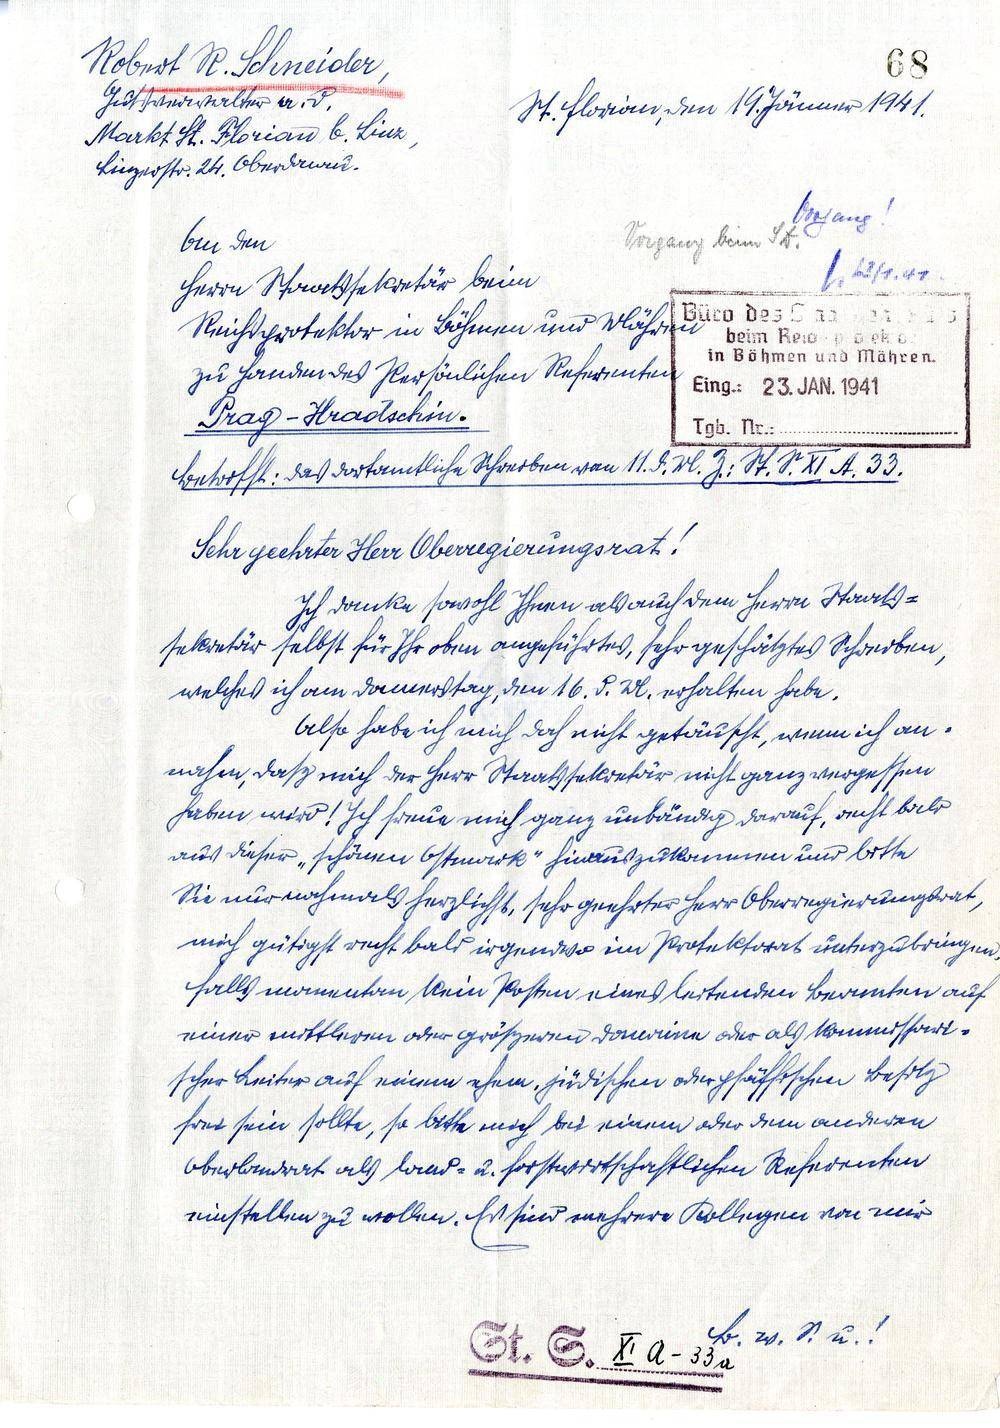 68
Robert R. Schneider,
Gutsverwalter a. D.
Markt St. Florian b. Linz,
Linzerstr. 24. Oberdonau.
St. Florian, den 19. Jänner 1941.
Vorgang!
Vorgang beim St.
An den
Herrn Staatssekretär beim
Reichsprotektor in Böhmen und Mähren
zu Handen des Persönlichen Referenten
Prag - Hradschin.
Büro des
beim
in Böhmen und Mähren.
Eing.: 23. JAN. 1941
Tgb. Nr.:
Betrifft: das dortamtliche Schreiben vom 11. d. M. Z: St. S. XI A. 33.
Sehr geehrter Herr Oberregierungsrat!
Ich danke sowohl Ihnen als auch dem Herrn Staats=
sekretär selbst für Ihr oben angeführtes, sehr geschätztes Schreiben,
welches ich am Donnerstag, den 16. d. M. erhalten habe.
Also habe ich mich doch nicht getäuscht, wenn ich an-
nahm, dasz mich der Herr Staatssekretär nicht ganz vergessen
haben wird! Ich freue mich ganz unbändig darauf, recht bald
aus dieser „schönen Ostmark" hinauszukommen und bitte
Sie nur nochmals herzlichst, sehr geehrter Herr Oberregierungsrat,
mich gütigst recht bald irgendwo im Protektorat unterzubringen.
Falls momentan kein Posten eines leitenden Beamten auf
einer mittleren oder gröszeren Domäne oder als kommissari-
scher Leiter auf einem ehem. jüdischen oder pfäffischen Besitz
frei sein sollte, so bitte mich bei einem oder dem anderen
Oberlandrat als land- u. forstwirtschaftlichen Referenten
einstellen zu wollen. Es sind mehrere Kollegen von mir
b. w. S. u.!
St. S. XI A - 33a